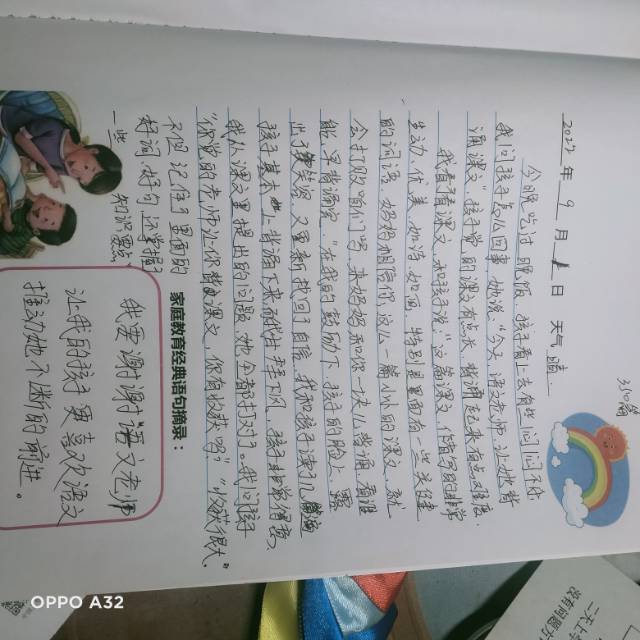 310篇
2022年 9 月 1 日 天气 晴
今晚吃过晚饭，孩子看上去有些闷闷不乐
我问孩子怎么回事 她说："今天 语文老师 让她背
诵课文"孩子觉的课文有点长 背诵起来有点难度.
我看着课文 和孩子说"这篇课文 作者写的非常
生动、优美 如诗 如画 特别是里面有一些关键
的词语 妈妈相信你 这么一篇小小的课文 就
会打败咱们吗 来妈妈和你一块儿学习 看谁
能早背诵完"在我的鼓励下 孩子的脸上 露
出了笑容 又重新找回了自信 我和孩子读了几遍
孩子基本上背下来
我从课文里提出的问题 她全都打对了。我问孩子
"你觉的老师让你背课文 你有收获吗？""收获很大。
不但记住了里面的
好词 好句 还掌握
一些 知识要点
家庭教育经典语句摘录：
我要谢谢"语文老师
让我的孩子更喜欢语文
推动她不断的前进。
OPPO A32